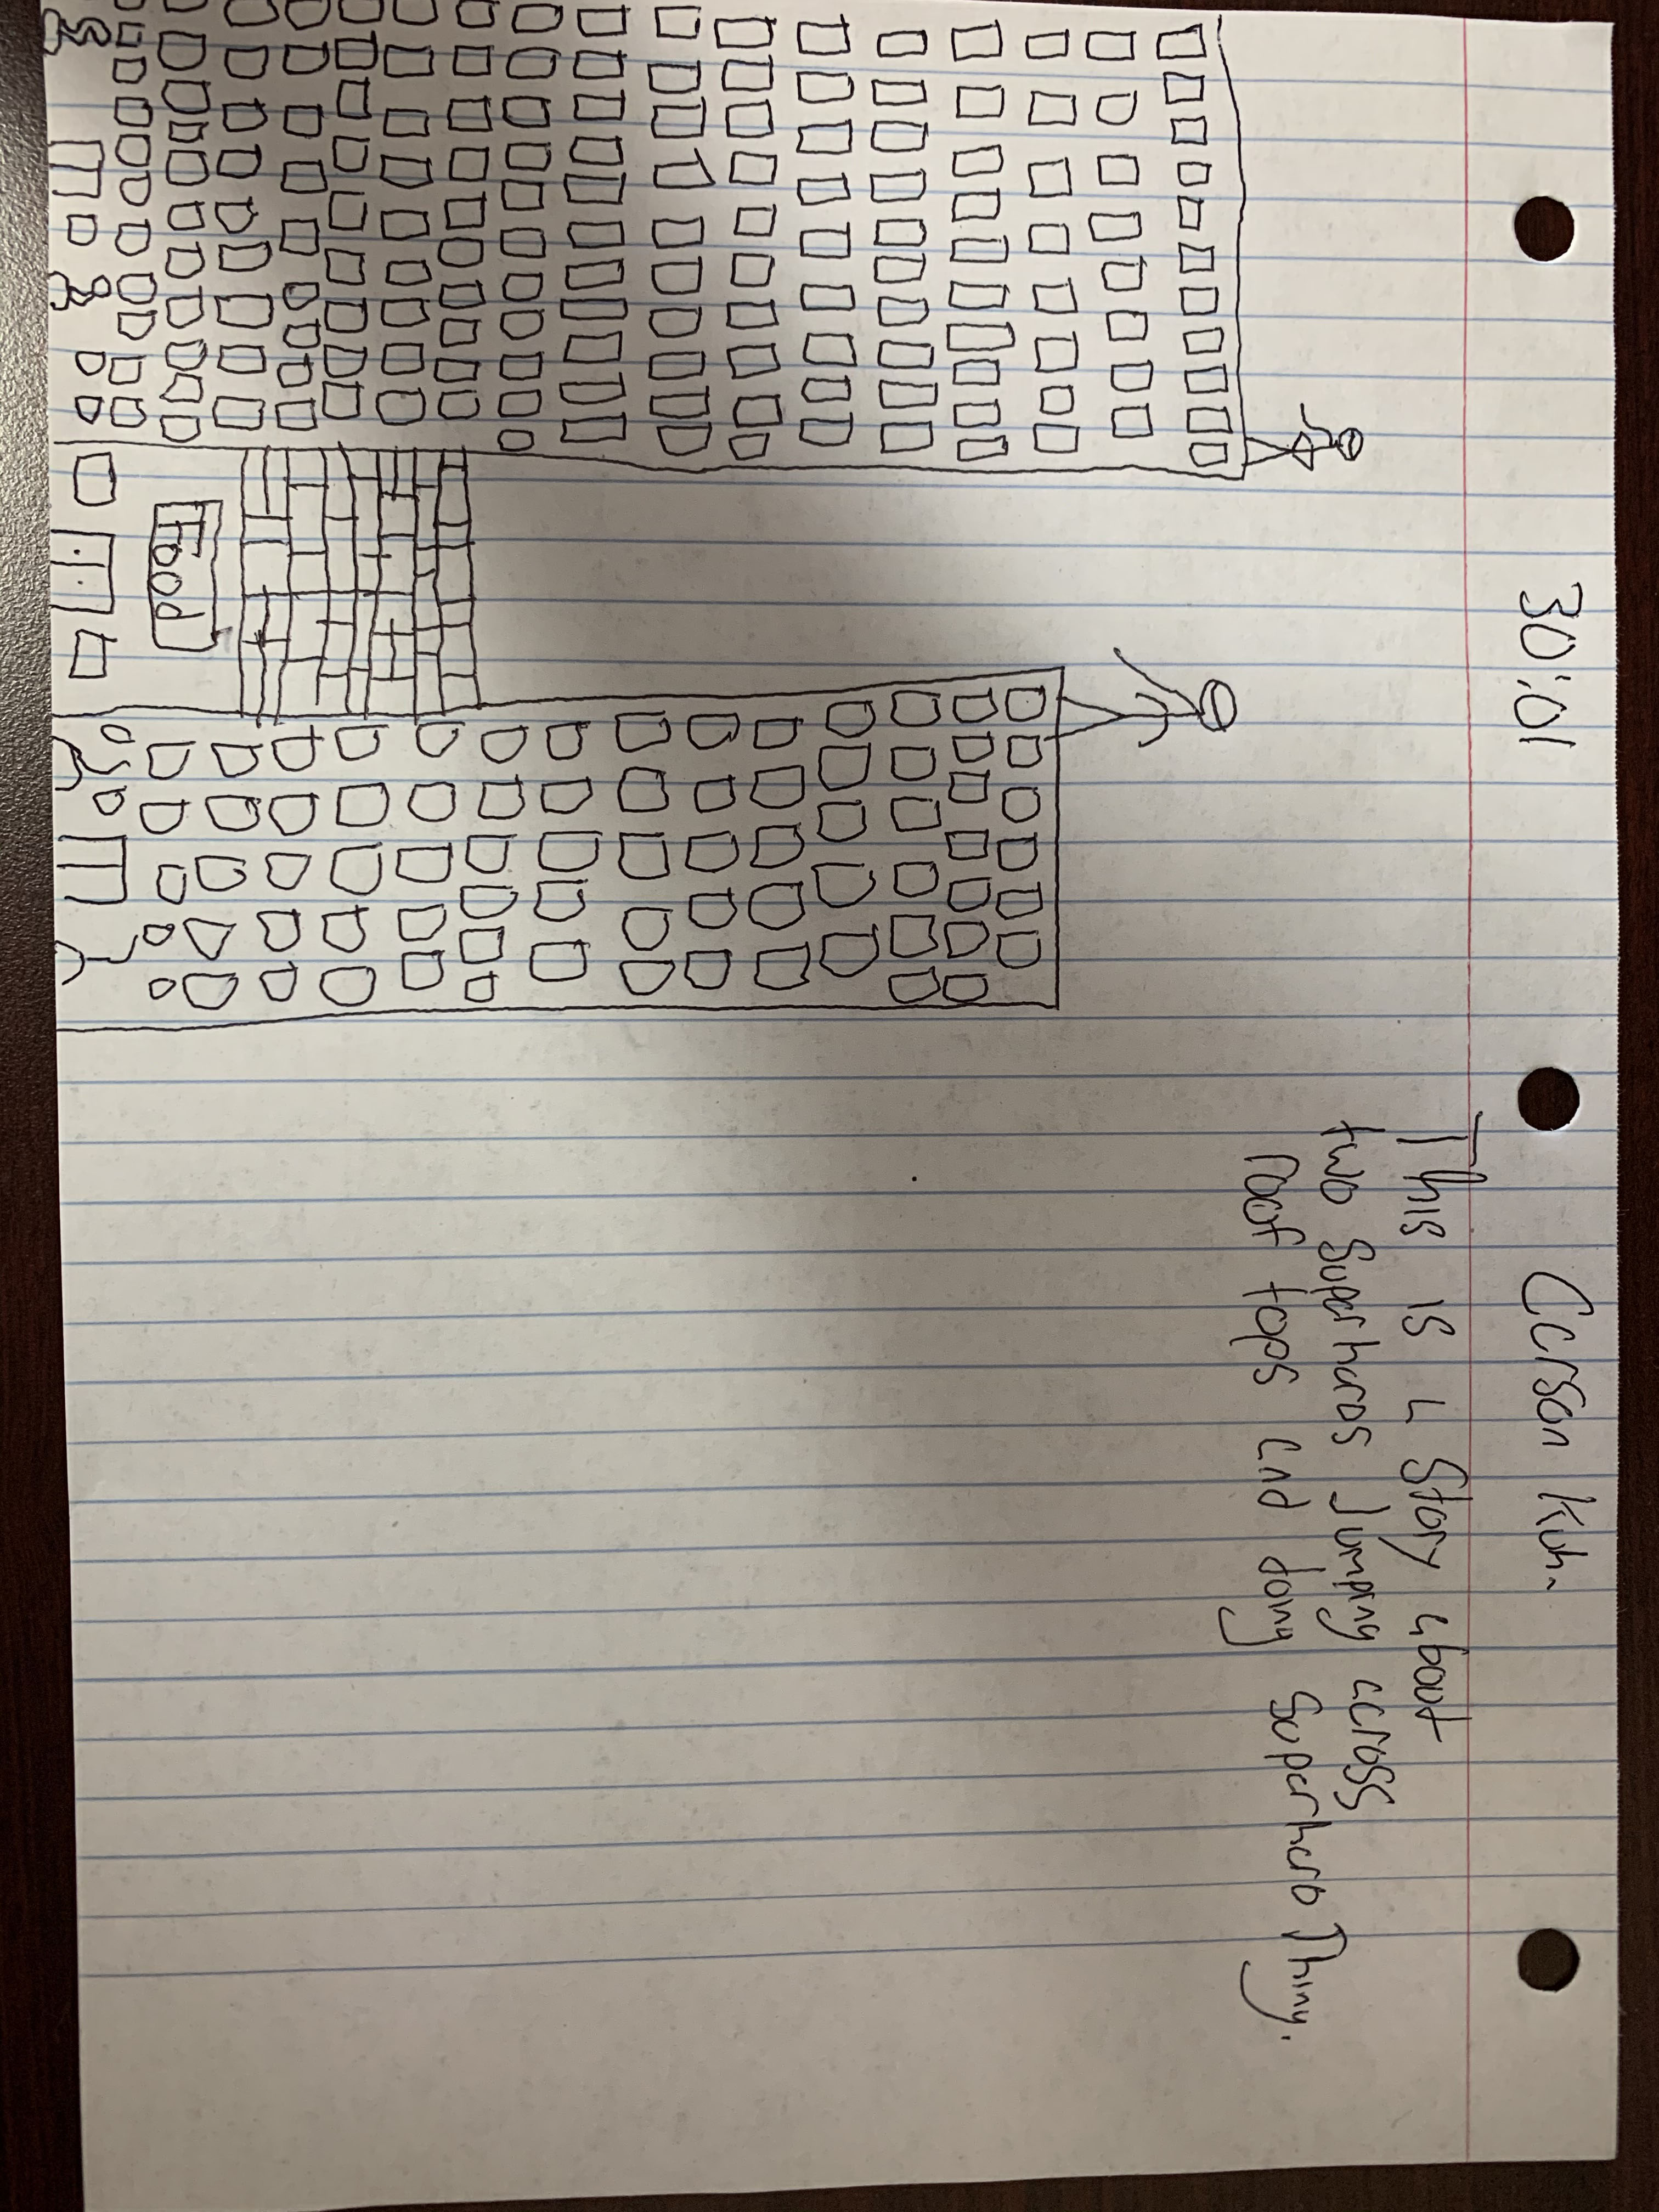 30:01
Carson Kuhn
This is a Story about
two Superheros Jumping across
roof tops and doing Superhero Thing.
Food